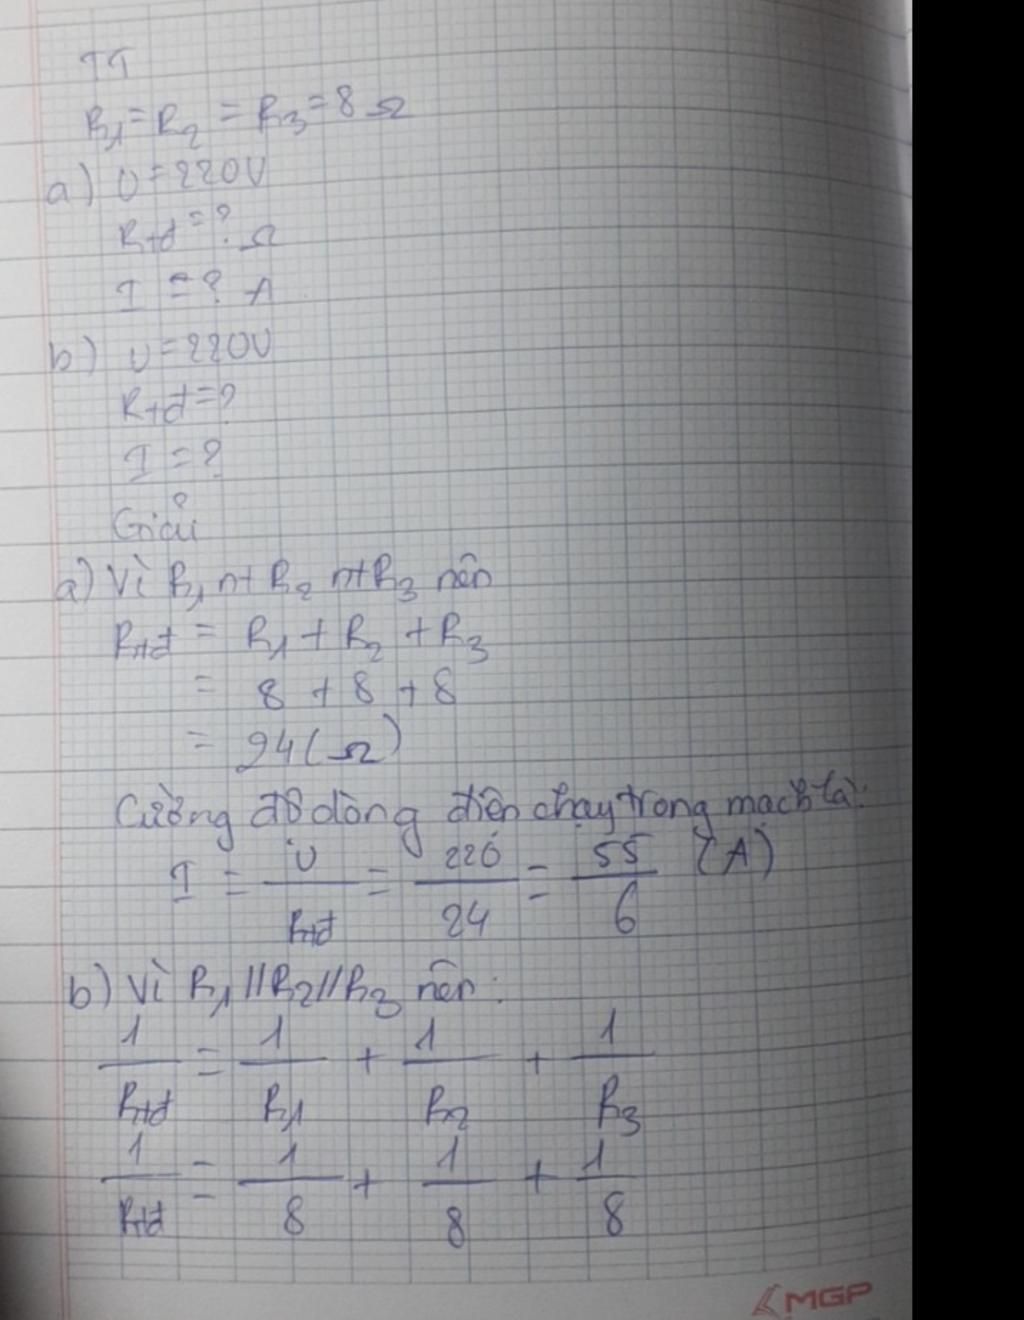 TT
R1 = R2 = R3 = 8 Ω
a) U = 220V
Rtđ = ? Ω
I = ? A
b) U = 220V
Rtđ = ?
I = ?
Giải
a) Vì R1 nt R2 nt R3 nên
Rtđ = R1 + R2 + R3
= 8 + 8 + 8
= 24 (Ω)
Cường độ dòng điện chạy trong mạch là:
I = U/Rtđ = 220/24 = 55/6 (A)
b) Vì R1 // R2 // R3 nên:
1/Rtđ = 1/R1 + 1/R2 + 1/R3
1/Rtđ = 1/8 + 1/8 + 1/8
MGP